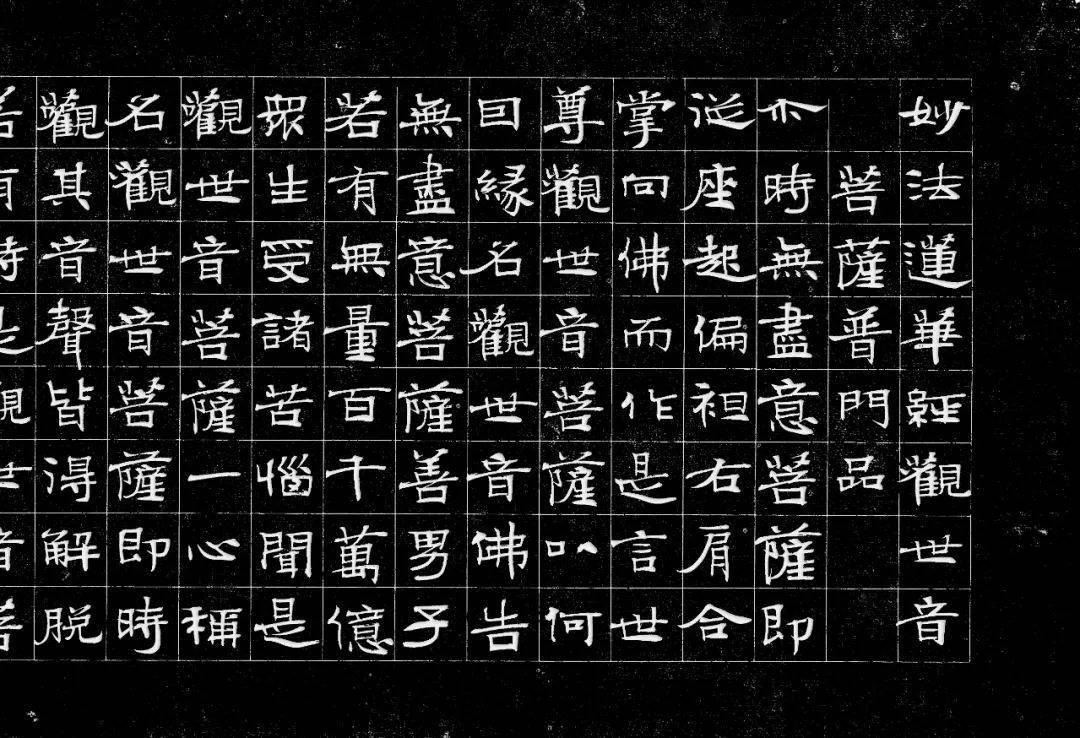 妙法蓮華經觀世音
菩薩普門品
尒時無盡意菩薩即
從座起偏袒右肩合
掌向佛而作是言世
尊觀世音菩薩以何
因緣名觀世音佛告
無盡意菩薩善男子
若有無量百千萬億
眾生受諸苦惱聞是
觀世音菩薩一心稱
名觀世音菩薩即時
觀其音聲皆得解脫
若有持是觀世音菩